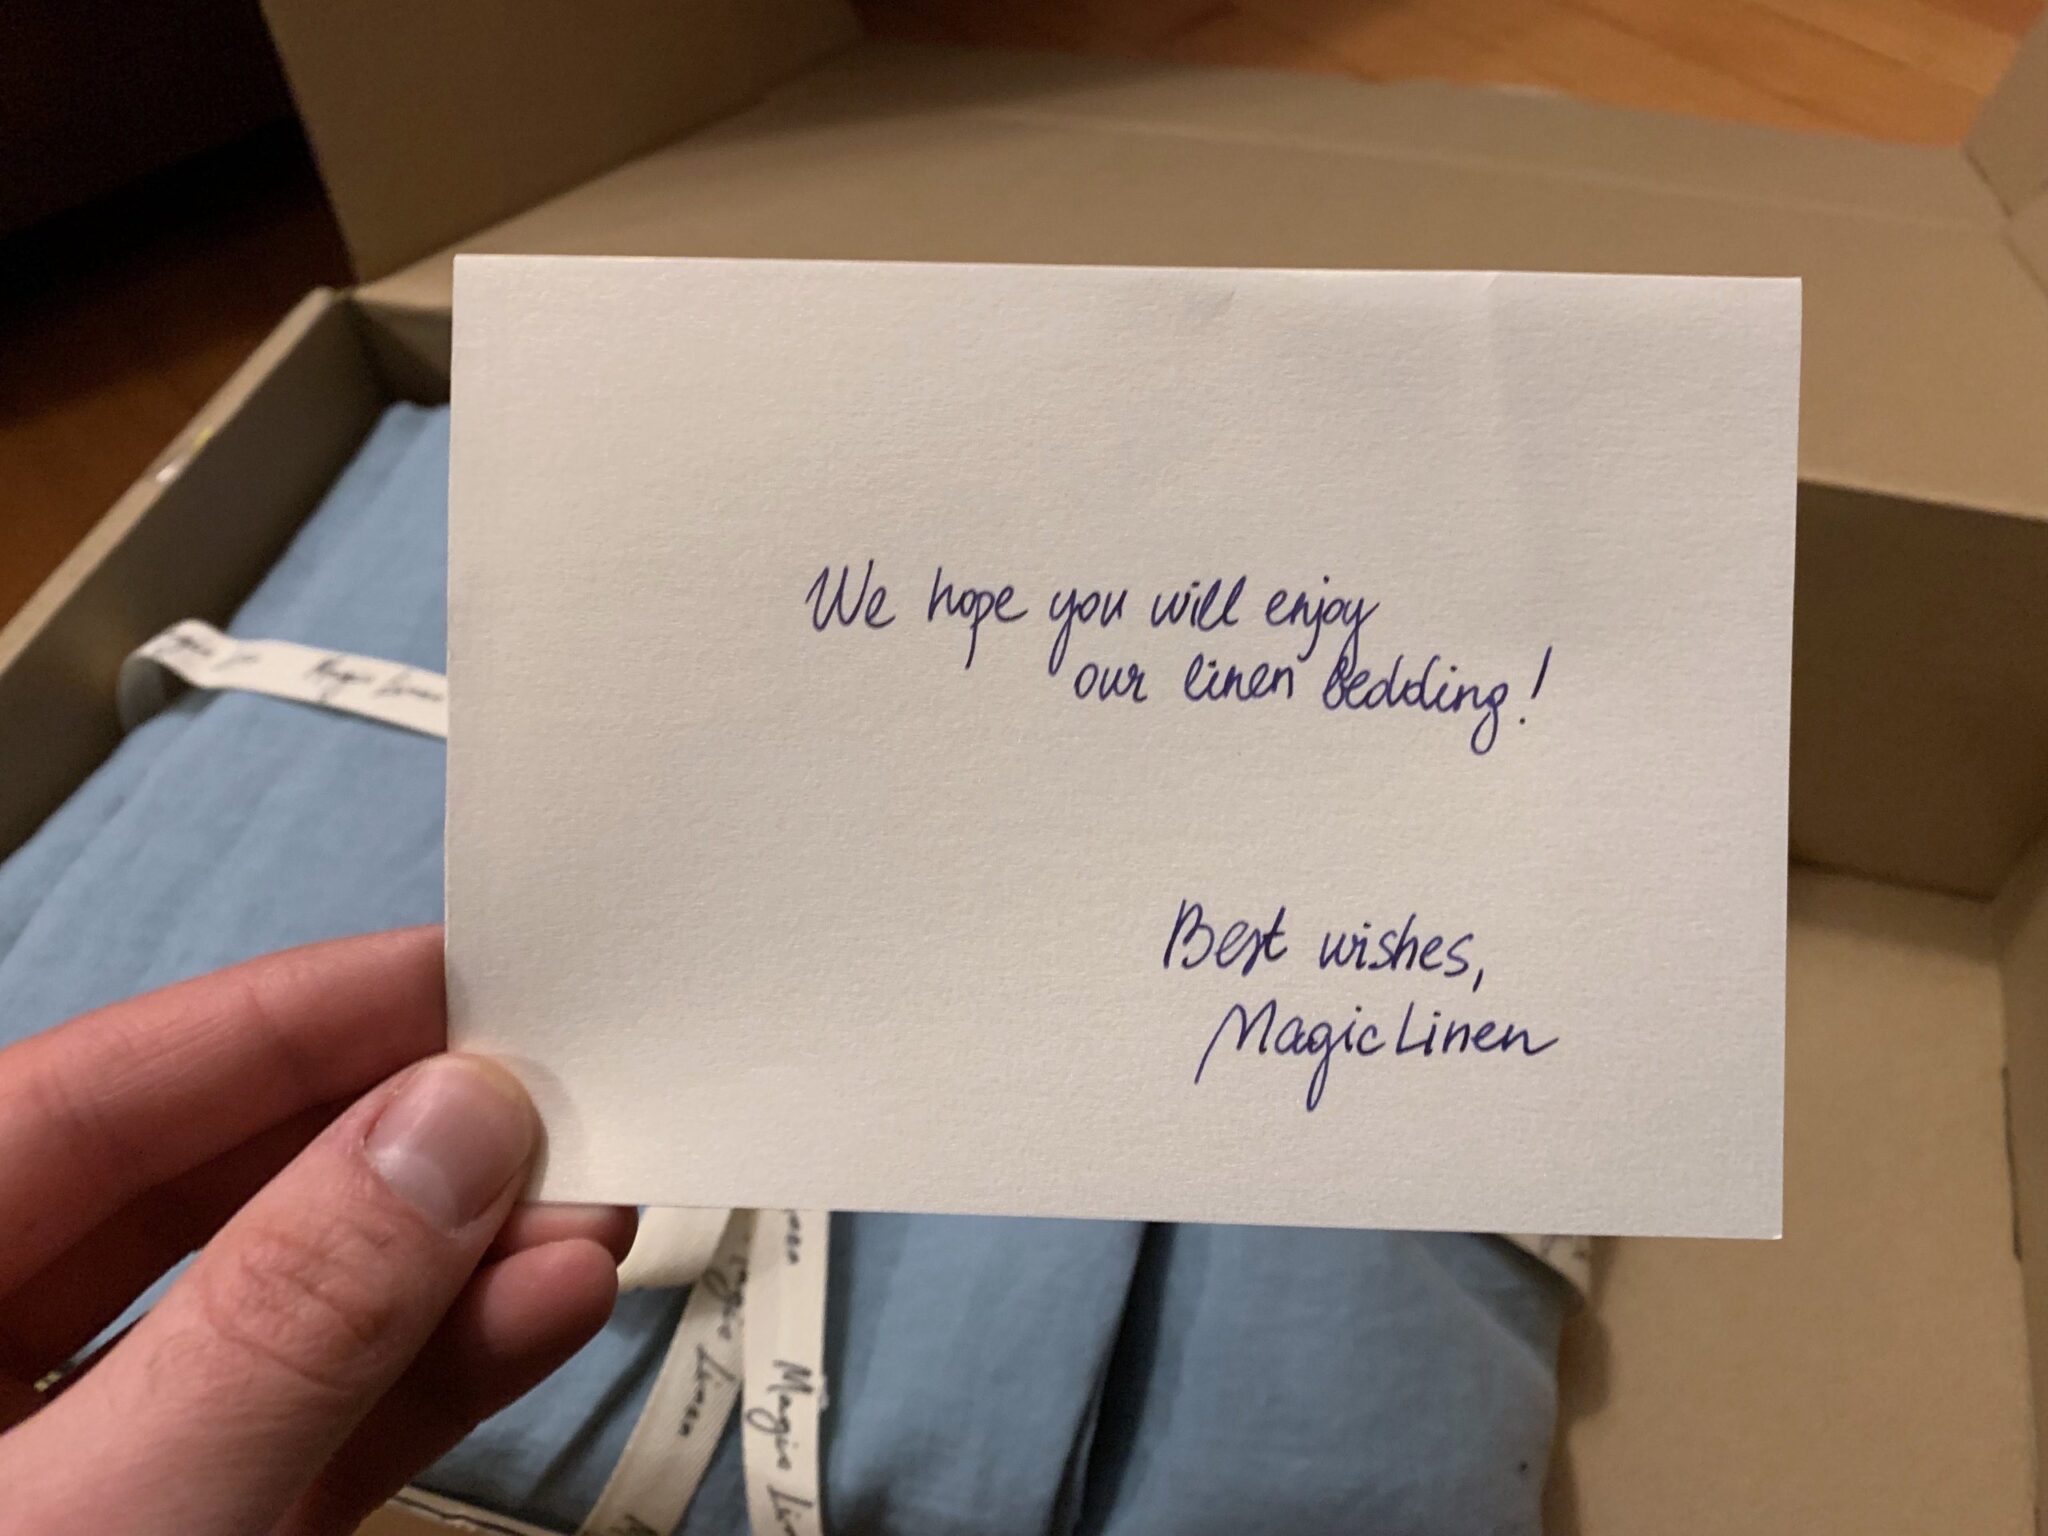 We hope you will enjoy
our linen bedding!
Best wishes,
MagicLinen
Magic Linen
Magic Linen
Magic Lin